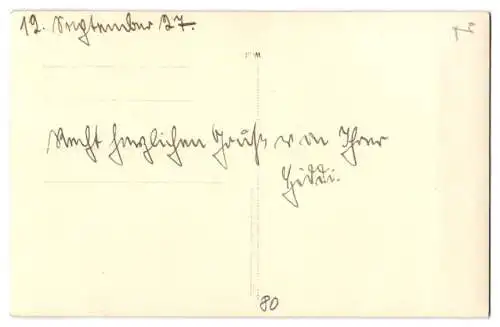 12. September 27.
Recht herzlichen Gruß von Ihrer
Hiddi.
80